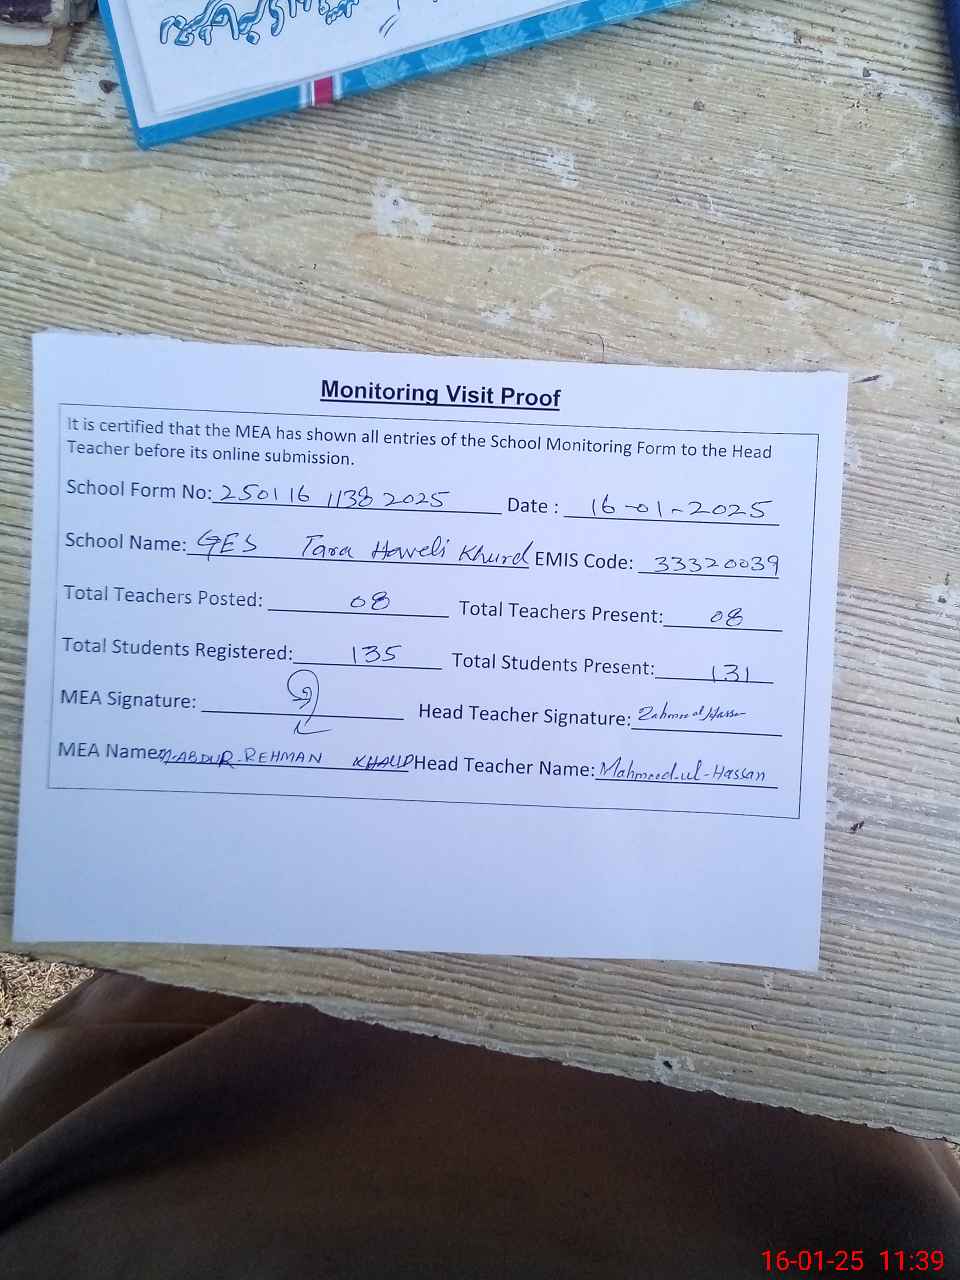 Monitoring Visit Proof
It is certified that the MEA has shown all entries of the School Monitoring Form to the Head
Teacher before its online submission.
School Form No: 250116 1138 2025 Date : 16-01-2025
School Name: GES Tara Haweli Khurd EMIS Code: 33320039
Total Teachers Posted: 08 Total Teachers Present: 08
Total Students Registered: 135 Total Students Present: 131
MEA Signature: Head Teacher Signature:
MEA Name: M-ABDUR-REHMAN KHALID Head Teacher Name: Mahmood-ul-Hassan
16-01-25 11:39